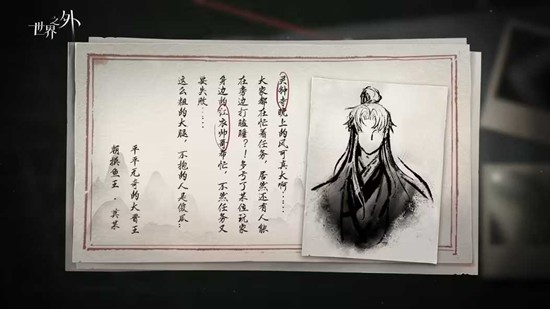 世界之外
灵钟寺晚上的风可真大啊……
大家都在忙着任务，居然还有人能
在旁边打瞌睡？！多亏了某位玩家
身边的红衣帅哥帮忙，不然任务又
要失败……
这么粗的大腿，不抱的人是傻瓜：
平平无奇的大晋王
朝摸鱼王，其某